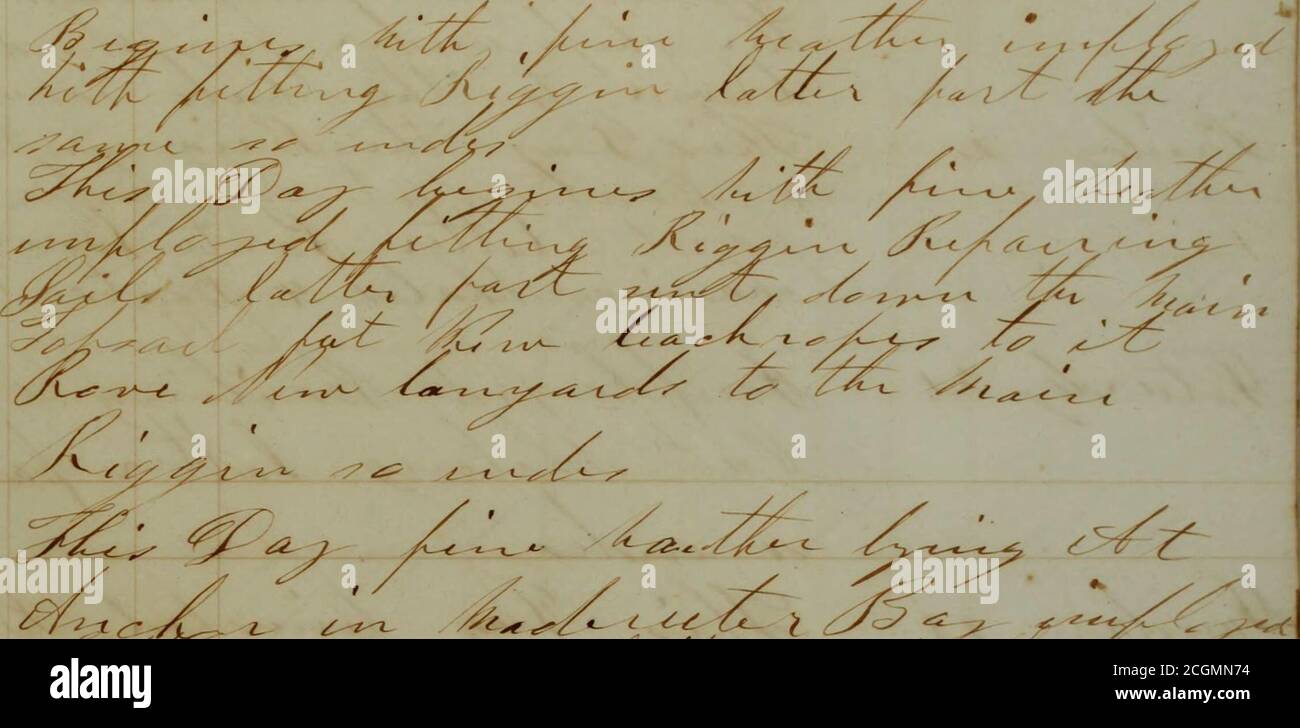 Begines with fine weather imployed
with fitting Riggin latter part the
same so endes
This Day begines with fine weather
imployed fitting Riggin Repairing
Sails latter part sent down the main
Topsail put New leachropes to it
Rove New lanyards to the main
Riggin so endes
This Day fine weather lying At
Anchor in Bay imployed
alamy
Image ID: 2CGMN74
www.alamy.com